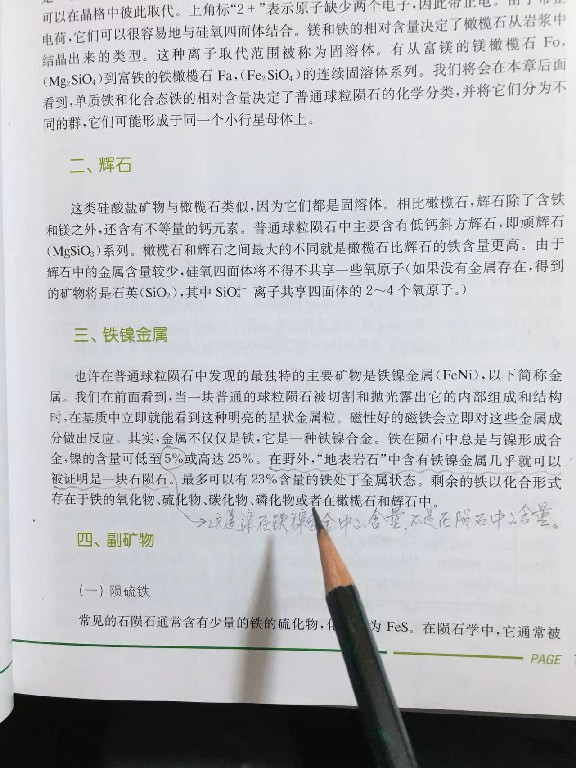 可以在晶格中彼此取代。上角标“2+”表示原子缺少两个电子,因此带正电。由于带正
电荷,它们可以很容易地与硅氧四面体结合。镁和铁的相对含量决定了橄榄石从岩浆中
结晶出来的类型。这种离子取代范围被称为固溶体。有从富镁的镁橄榄石 Fo,
(Mg₂SiO₄)到富铁的铁橄榄石 Fa,(Fe₂SiO₄)的连续固溶体系列。我们将会在本章后面
看到,单质铁和化合态铁的相对含量决定了普通球粒陨石的化学分类,并将它们分为不
同的群,它们可能形成于同一个小行星母体上。
二、辉石
这类硅酸盐矿物与橄榄石类似,因为它们都是固溶体。相比橄榄石,辉石除了含铁
和镁之外,还含有不等量的钙元素。普通球粒陨石中主要含有低钙斜方辉石,即顽辉石
(MgSiO₃)系列。橄榄石和辉石之间最大的不同就是橄榄石比辉石的铁含量更高。由于
辉石中的金属含量较少,硅氧四面体将不得不共享一些氧原子(如果没有金属存在,得到
的矿物将是石英(SiO₂),其中 SiO₄⁴⁻ 离子共享四面体的 2～4 个氧原子。)
三、铁镍金属
也许在普通球粒陨石中发现的最独特的主要矿物是铁镍金属(FeNi),以下简称金
属。我们在前面看到,当一块普通的球粒陨石被切割和抛光露出它的内部组成和结构
时,在基质中立即就能看到这种明亮的星状金属粒。磁性好的磁铁会立即对这些金属成
分做出反应。其实,金属不仅仅是铁,它是一种铁镍合金。铁在陨石中总是与镍形成合
金,镍的含量可低至5%或高达 25%。在野外,“地表岩石”中含有铁镍金属几乎就可以
被证明是一块石陨石。最多可以有 23%含量的铁处于金属状态。剩余的铁以化合形式
存在于铁的氧化物、硫化物、碳化物、磷化物或者在橄榄石和辉石中。
→这是镍在铁镍合金中的含量,不是在陨石中的含量。
四、副矿物
(一) 陨硫铁
常见的石陨石通常含有少量的铁的硫化物,化 为 FeS。在陨石学中,它通常被
PAGE